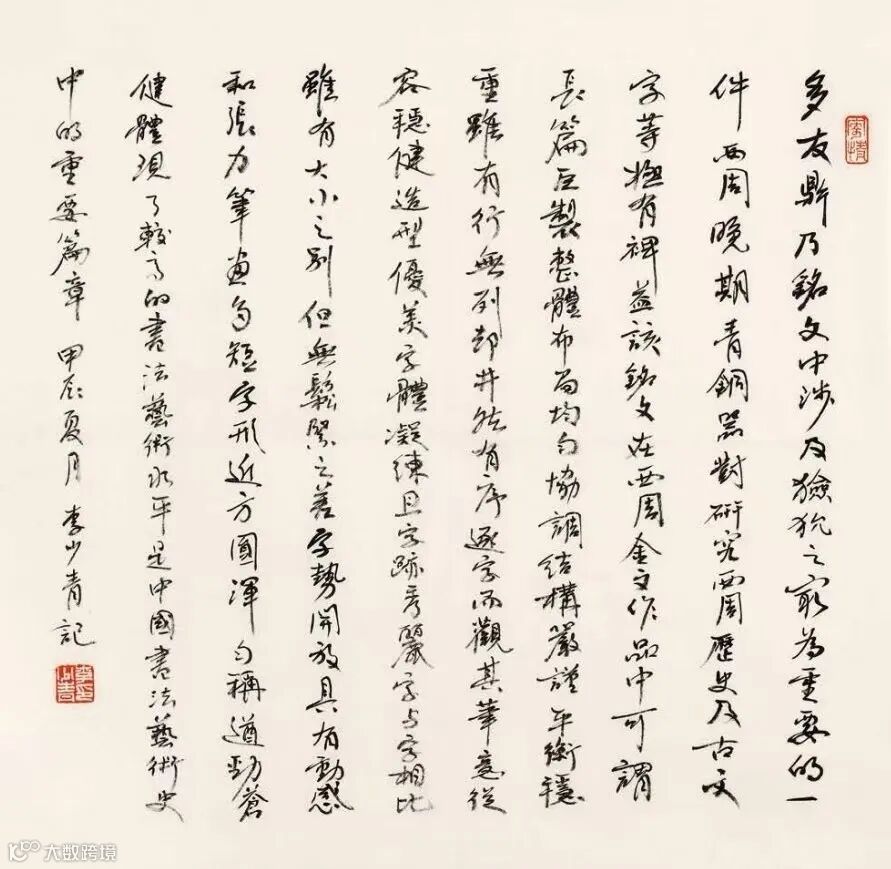 多友鼎乃銘文中涉及獫狁之最為重要的一
件西周晚期青銅器對研究西周歷史及古文
字等極有裨益該銘文在西周金文作品中可謂
長篇巨製整體布局均勻協調結構嚴謹平衡穩
重雖有行無列卻井然有序逐字而觀其筆意從
容穩健造型優美字體凝練且字跡秀麗字与字相比
雖有大小之別但無鬆緊之差字勢開放具有動感
和張力筆畫勻短字形近方圓渾勻稱遒勁蒼
健體現了較高的書法藝術水平是中國書法藝術史
中的重要篇章 甲辰夏月 李少青記
大数跨境